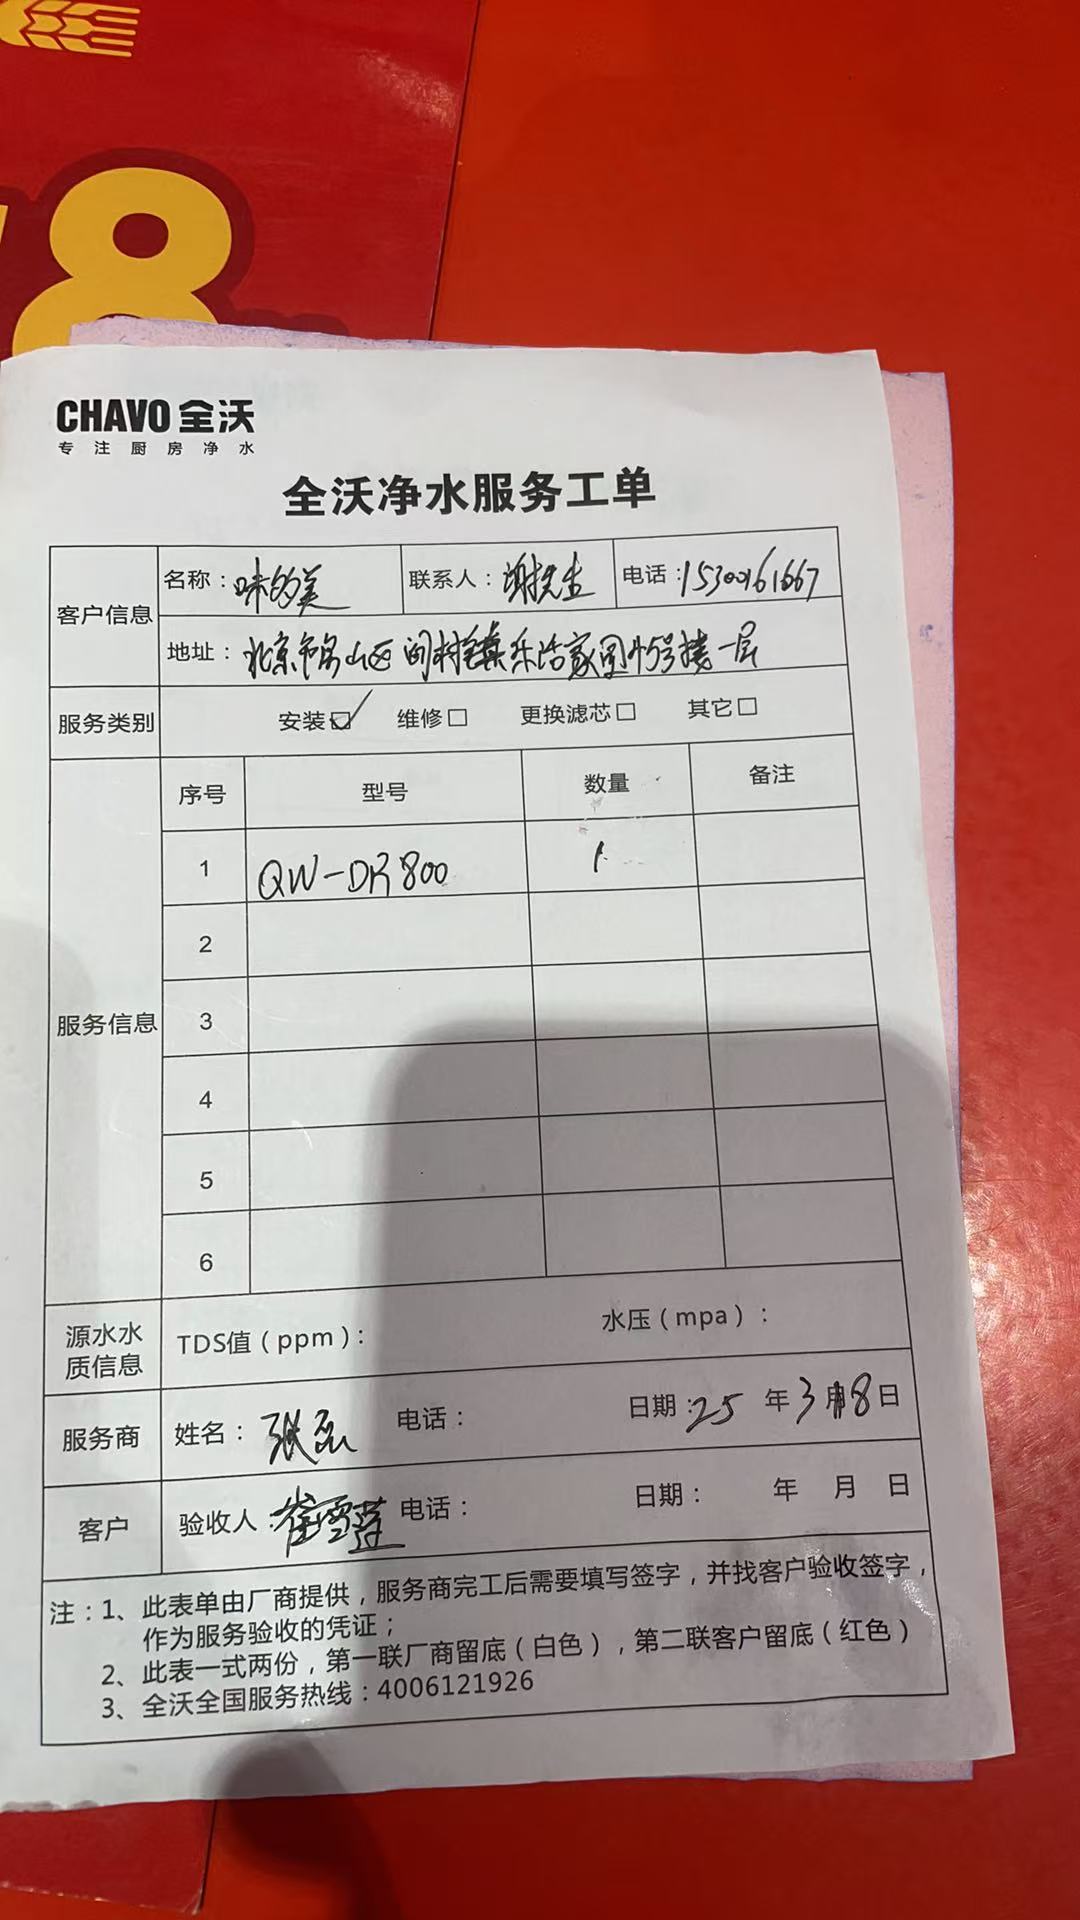 8
CHAVO 全沃
专注厨房净水
全沃净水服务工单
客户信息
名称：味的美 联系人：谢先生 电话：15300161667
地址：北京市房山区闫村镇乐活家园15号楼一层
服务类别 安装☑ 维修□ 更换滤芯□ 其它□
服务信息
序号 型号 数量 备注
1 QW-DR800 1
2
3
4
5
6
源水水质信息 TDS值（ppm）： 水压（mpa）：
服务商 姓名：张磊 电话： 日期：25年3月8日
客户 验收人：崔雪莲 电话： 日期： 年 月 日
注：1、此表单由厂商提供，服务商完工后需要填写签字，并找客户验收签字，
作为服务验收的凭证；
2、此表一式两份，第一联厂商留底（白色），第二联客户留底（红色）
3、全沃全国服务热线：4006121926